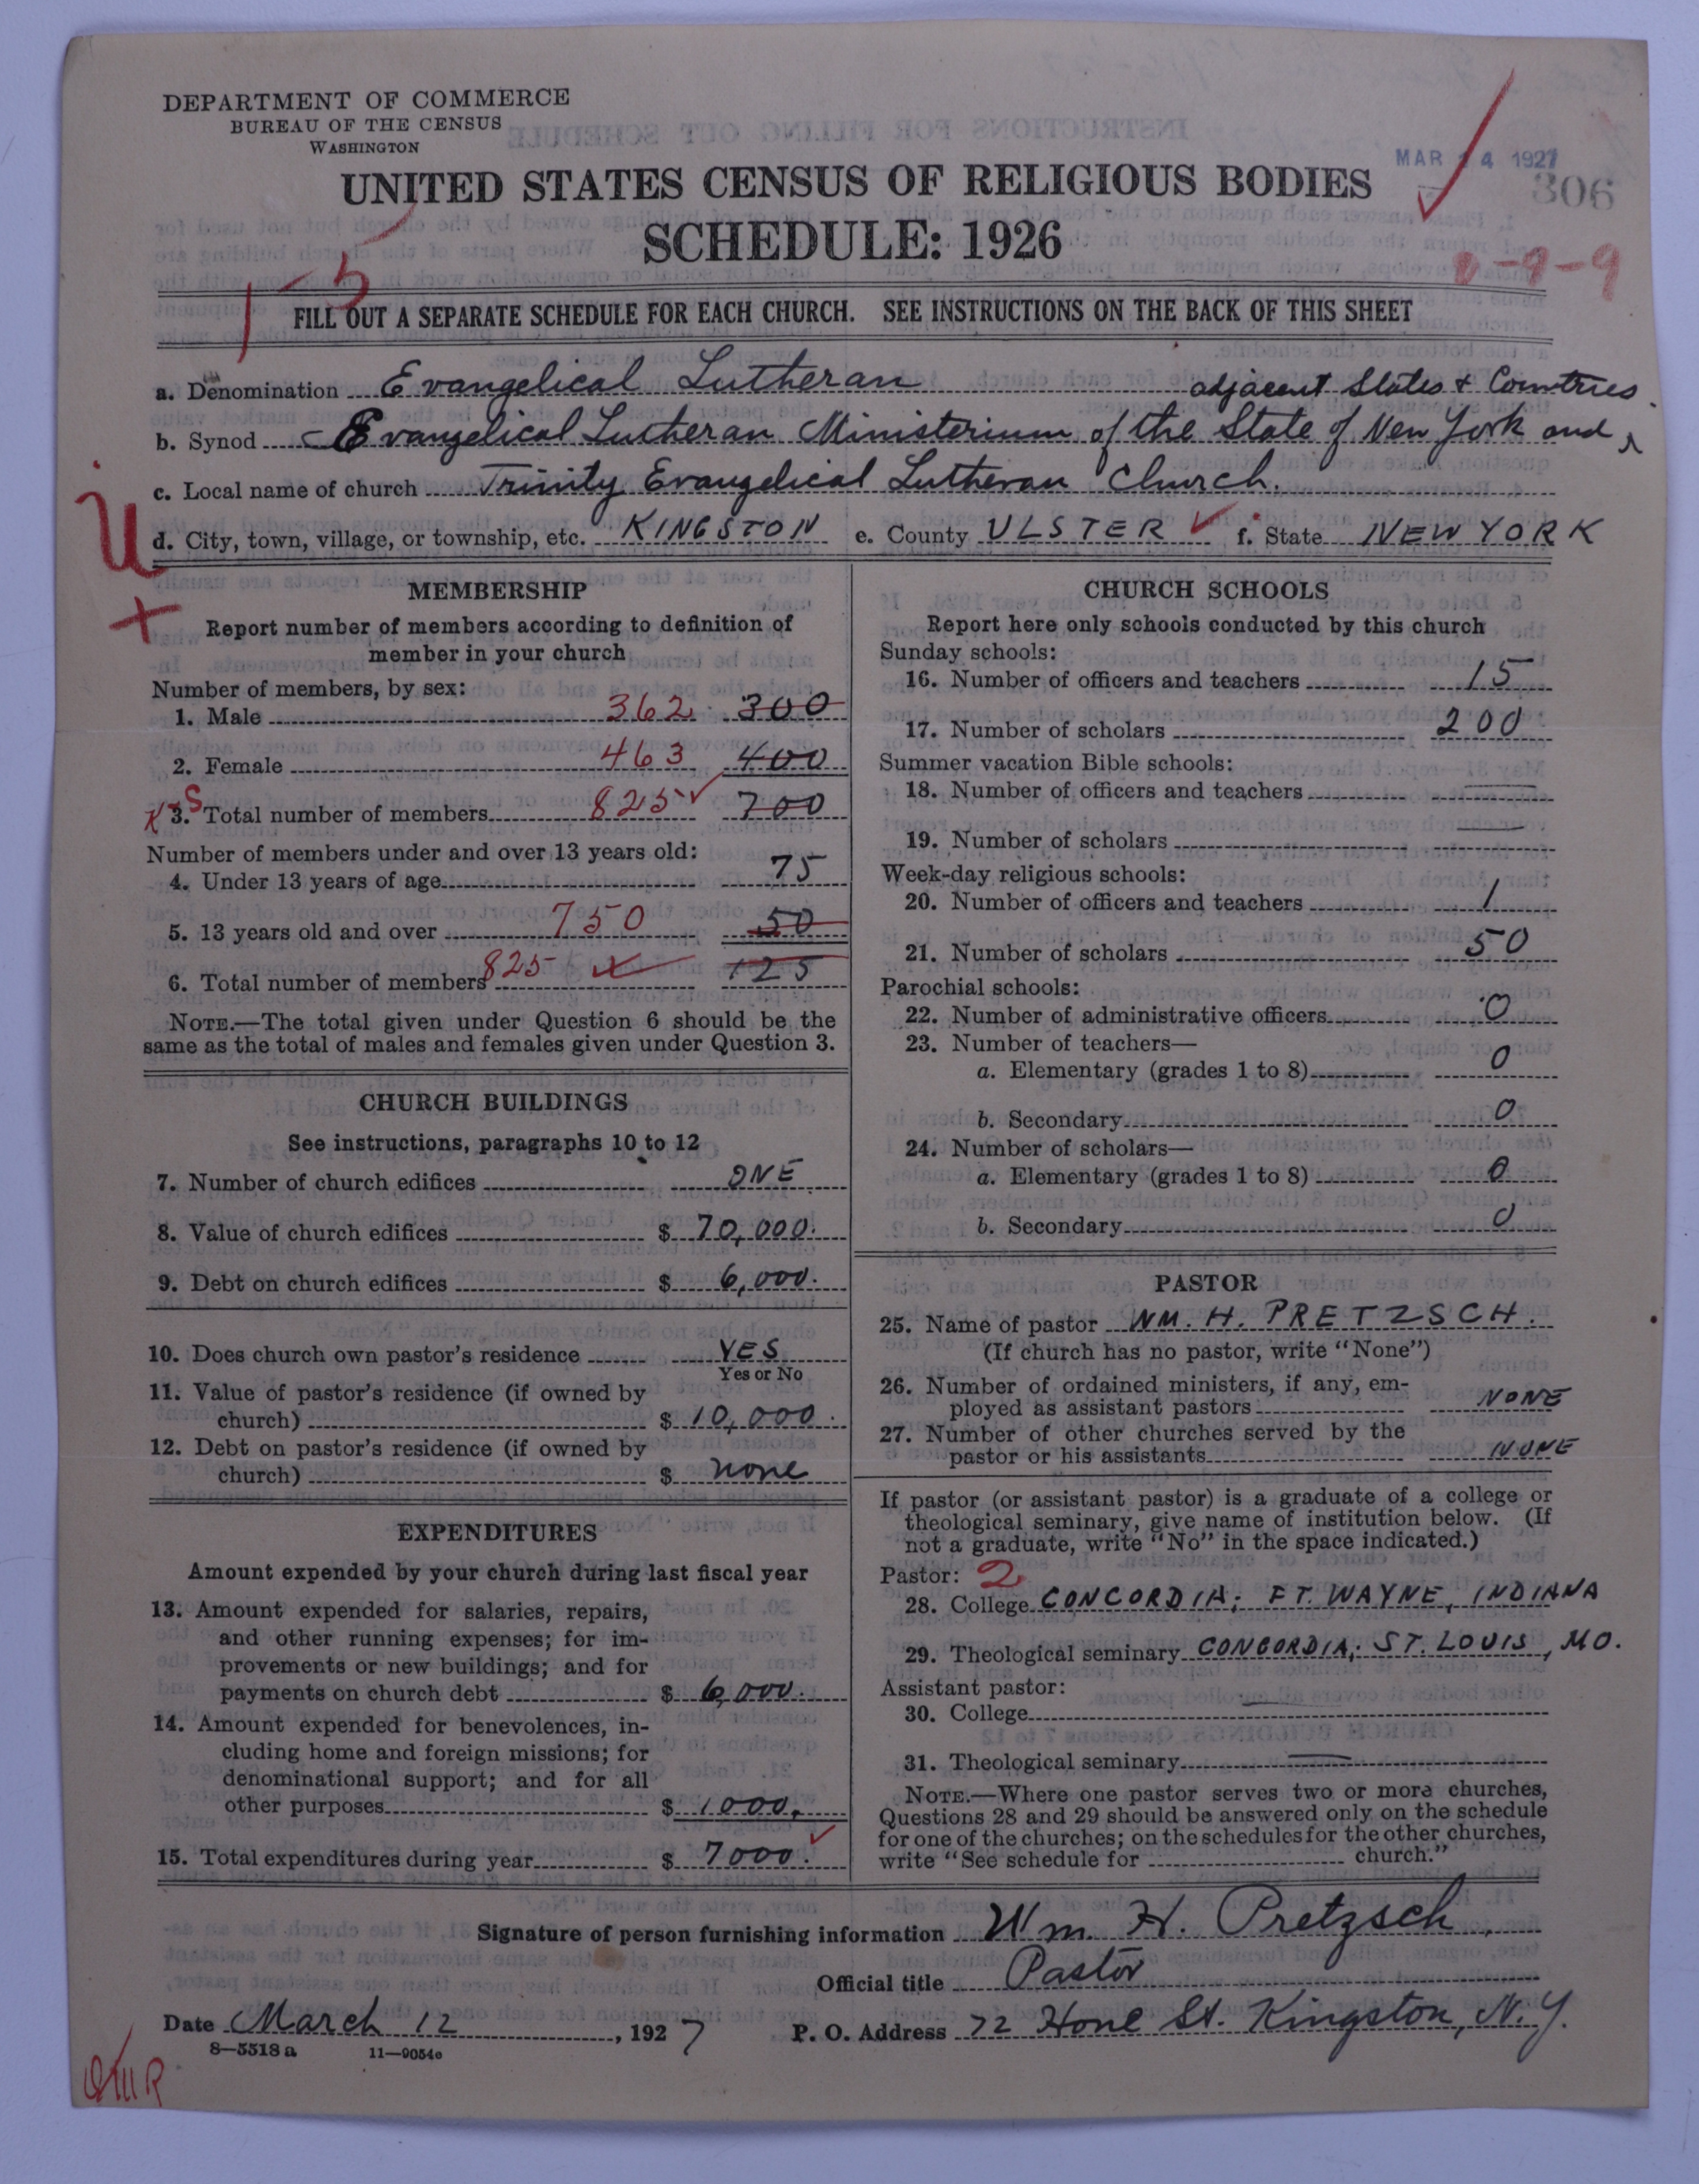 DEPARTMENT OF COMMERCE
BUREAU OF THE CENSUS
WASHINGTON
UNITED STATES CENSUS OF RELIGIOUS BODIES
SCHEDULE: 1926
MAR 14 1927
306
FILL OUT A SEPARATE SCHEDULE FOR EACH CHURCH. SEE INSTRUCTIONS ON THE BACK OF THIS SHEET
a. Denomination Evangelical Lutheran adjacent States & Countries.
b. Synod Evangelical Lutheran Ministerium of the State of New York and
c. Local name of church Trinity Evangelical Lutheran Church.
d. City, town, village, or township, etc. KINGSTON e. County ULSTER f. State NEW YORK
MEMBERSHIP
Report number of members according to definition of
member in your church
Number of members, by sex:
1. Male 362 300
2. Female 463 400
3. Total number of members 825 700
Number of members under and over 13 years old:
4. Under 13 years of age 75
5. 13 years old and over 750 50
6. Total number of members 825 125
NOTE.—The total given under Question 6 should be the
same as the total of males and females given under Question 3.
CHURCH BUILDINGS
See instructions, paragraphs 10 to 12
7. Number of church edifices ONE
8. Value of church edifices $ 70,000.
9. Debt on church edifices $ 6,000.
10. Does church own pastor's residence YES
Yes or No
11. Value of pastor's residence (if owned by
church) $ 10,000.
12. Debt on pastor's residence (if owned by
church) $ none
EXPENDITURES
Amount expended by your church during last fiscal year
13. Amount expended for salaries, repairs,
and other running expenses; for im-
provements or new buildings; and for
payments on church debt $ 6,000.
14. Amount expended for benevolences, in-
cluding home and foreign missions; for
denominational support; and for all
other purposes $ 1000.
15. Total expenditures during year $ 7000.
CHURCH SCHOOLS
Report here only schools conducted by this church
Sunday schools:
16. Number of officers and teachers 15
17. Number of scholars 200
Summer vacation Bible schools:
18. Number of officers and teachers —
19. Number of scholars —
Week-day religious schools:
20. Number of officers and teachers 1
21. Number of scholars 50
Parochial schools:
22. Number of administrative officers 0
23. Number of teachers—
a. Elementary (grades 1 to 8) 0
b. Secondary 0
24. Number of scholars—
a. Elementary (grades 1 to 8) 0
b. Secondary 0
PASTOR
25. Name of pastor WM. H. PRETZSCH.
(If church has no pastor, write "None")
26. Number of ordained ministers, if any, em-
ployed as assistant pastors NONE
27. Number of other churches served by the
pastor or his assistants NONE
If pastor (or assistant pastor) is a graduate of a college or
theological seminary, give name of institution below. (If
not a graduate, write "No" in the space indicated.)
Pastor: 2
28. College CONCORDIA; FT. WAYNE, INDIANA
29. Theological seminary CONCORDIA; ST. LOUIS, MO.
Assistant pastor:
30. College —
31. Theological seminary —
NOTE.—Where one pastor serves two or more churches,
Questions 28 and 29 should be answered only on the schedule
for one of the churches; on the schedules for the other churches,
write "See schedule for church."
Signature of person furnishing information Wm. H. Pretzsch
Official title Pastor
Date March 12, 1927 P. O. Address 72 Hone St. Kingston, N.Y.
8—5518a 11—9054c